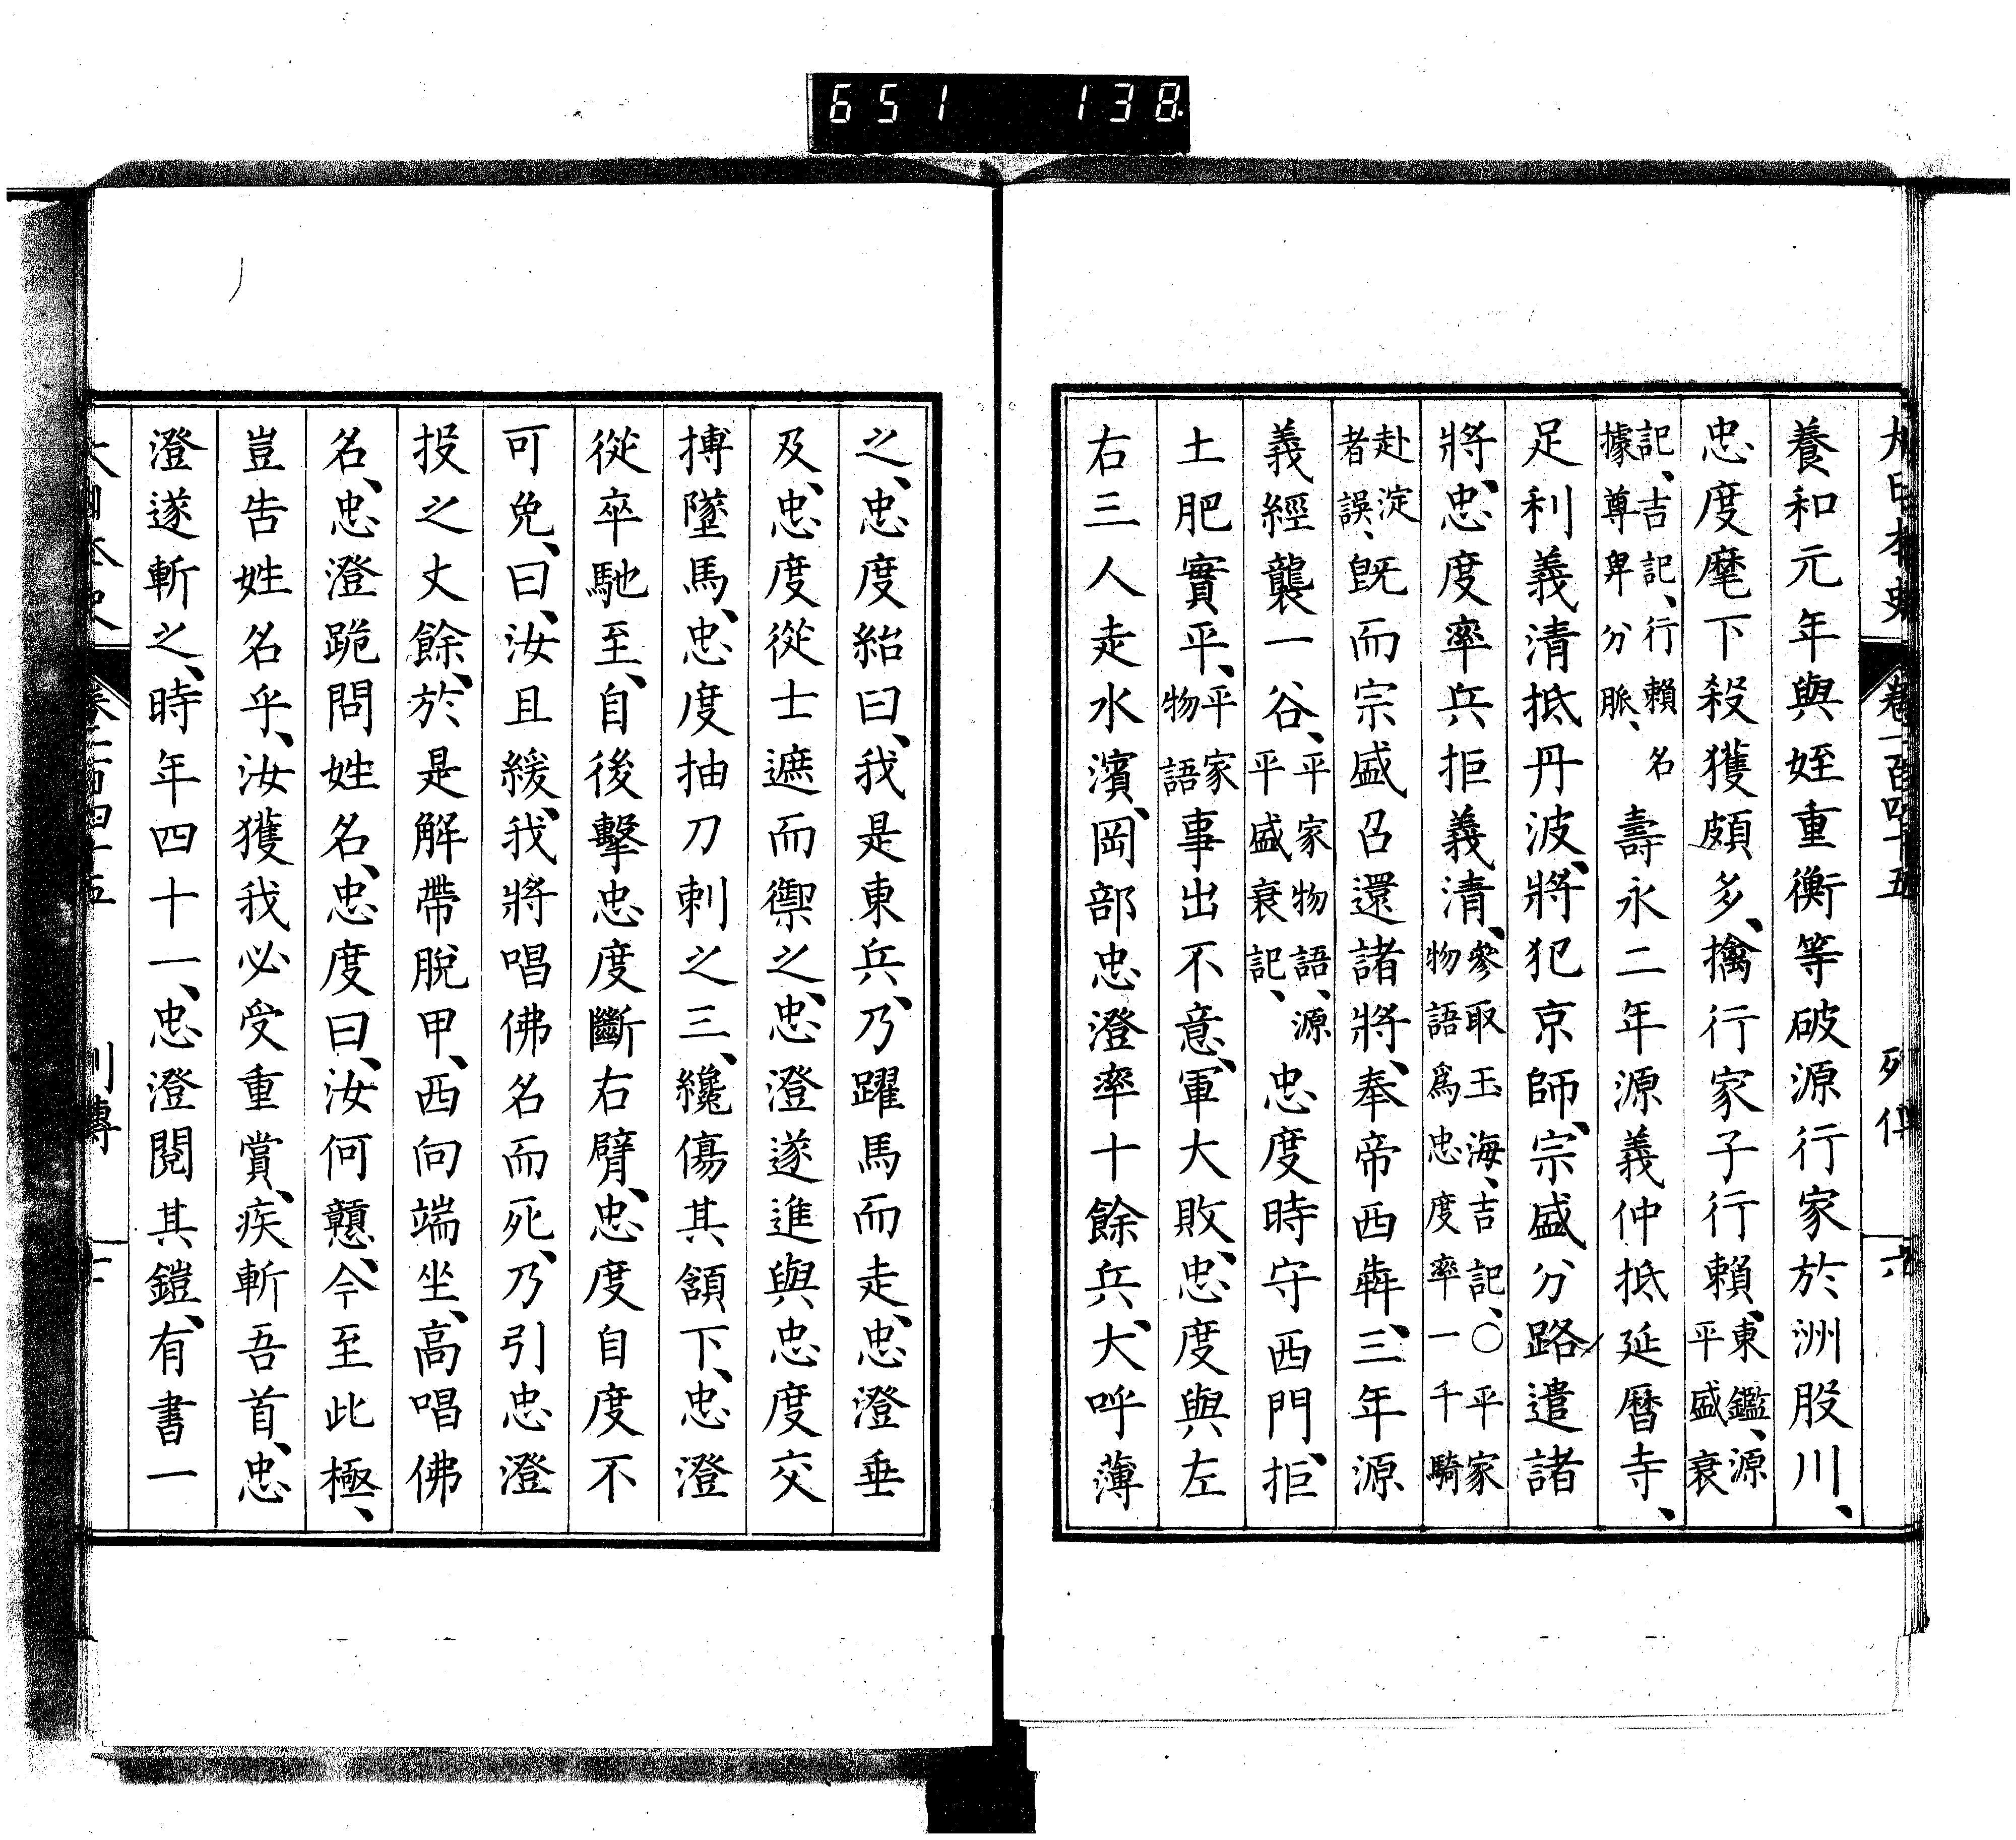 651 138
大日本史 卷一百四十五 列傳 六
養和元年與姪重衡等破源行家於洲股川、
忠度麾下殺獲頗多、擒行家子行賴、東鑑、源平盛衰
記、吉記、行賴名據尊卑分脈、壽永二年源義仲抵延曆寺、
足利義清抵丹波、將犯京師、宗盛分路遣諸
將、忠度率兵拒義清、參取玉海、吉記、○平家物語爲忠度率一千騎
赴淀者誤、既而宗盛召還諸將、奉帝西犇、三年源
義經襲一谷、平家物語、源平盛衰記、忠度時守西門、拒
土肥實平、平家物語事出不意、軍大敗、忠度與左
右三人走水濱、岡部忠澄率十餘兵、大呼薄
之、忠度紿曰、我是東兵、乃躍馬而走、忠澄垂
及、忠度從士遮而禦之、忠澄遂進與忠度交
搏墜馬、忠度抽刀刺之三、纔傷其頷下、忠澄
從卒馳至、自後擊忠度斷右臂、忠度自度不
可免、曰、汝且緩、我將唱佛名而死、乃引忠澄
投之丈餘、於是解帶脫甲、西向端坐、高唱佛
名、忠澄跪問姓名、忠度曰、汝何戇、今至此極、
豈告姓名乎、汝獲我必受重賞、疾斬吾首、忠
澄遂斬之、時年四十一、忠澄閱其鎧、有書一
大日本史 卷一百四十五 列傳